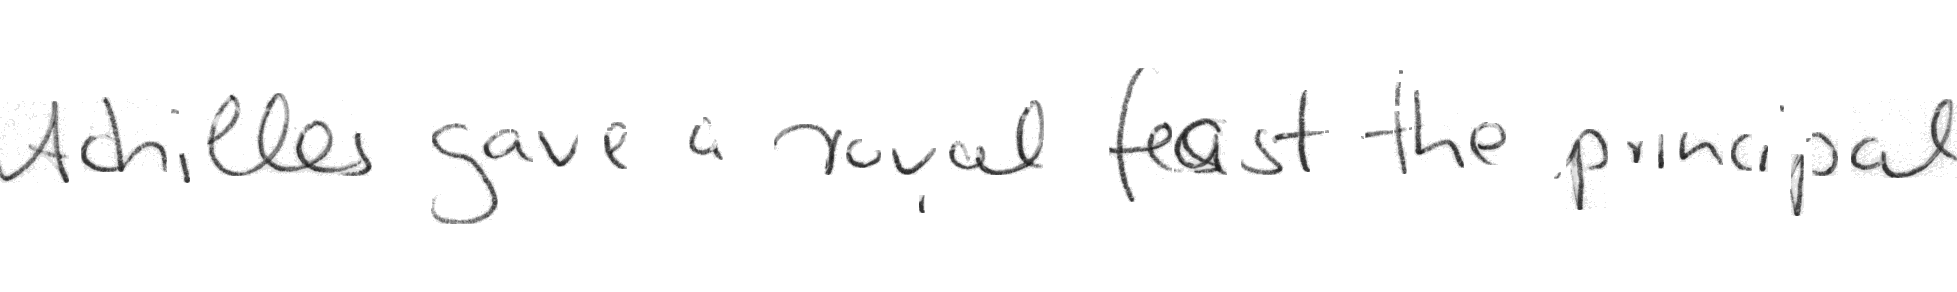 Achilles gave a royal feast the principal